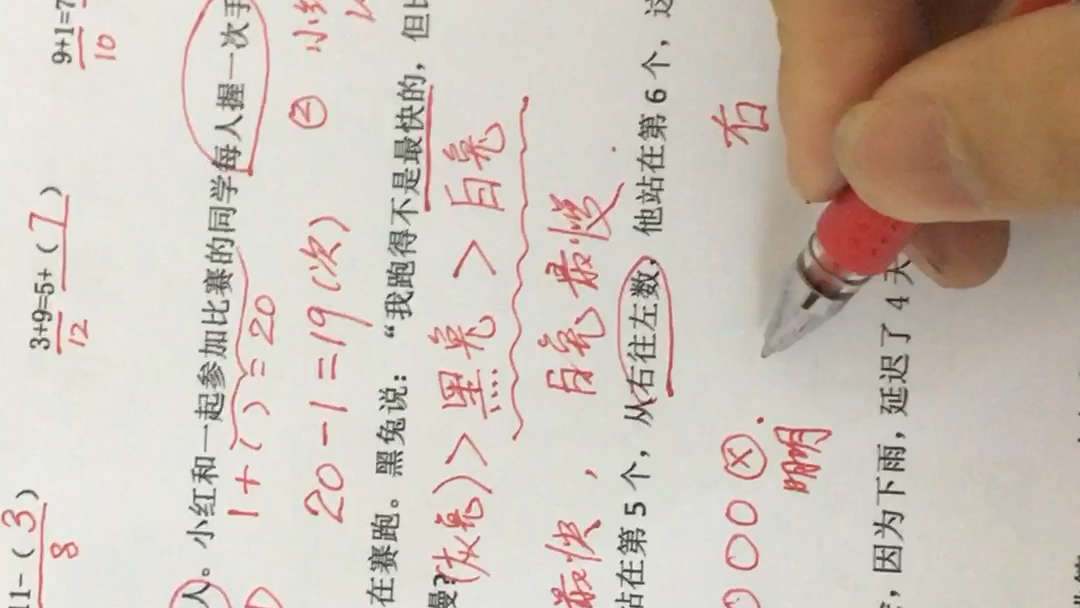 11-(3)
3+9=5+(7)
9+1=7
8
12
10
人。小红和一起参加比赛的同学每人握一次手
1+( )=20
20-1=19(次)
②
在赛跑。黑兔说：“我跑得不是最快的，但比
慢?
(灰兔)>黑兔>白兔
最快，白兔最慢
站在第5个，从右往左数，他站在第6个，这
右
明明
，因为下雨，延迟了4天